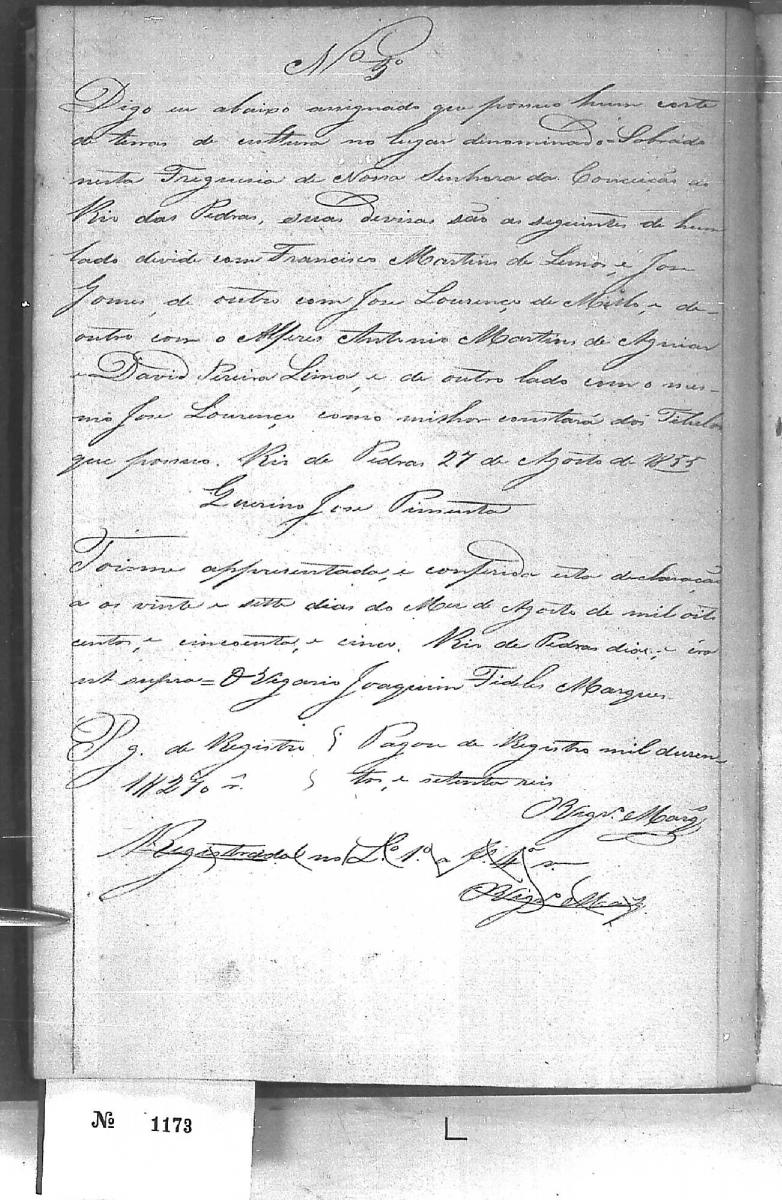 Nº 5º
Digo eu abaixo assignado que possuo hum corte
de terras de cultura no lugar denominado = Sobrado
nesta Freguesia de Nossa Senhora da Conceição do
Rio das Pedras, suas devisas são as seguintes de hum
lado devide com Francisco Martins de Lemos, e Jose
Gomes, de outro com Jose Lourenço de Mello, e de
outro com o Alferes Antonio Martins de Aguiar
e David Pereira Lima, e de outro lado com o mes-
mo Jose Lourenço como milhor constará dos Titulos
que possuo. Rio de Pedras 27 de Agosto de 1855
Guerino Jose Pimenta
Foi-me appresentada, e conferida esta declaração
a os vinte e sette dias do Mez de Agosto de mil oito
centos, e cincoenta, e cinco. Rio de Pedras dia, e éra
ut supra = O Vigario Joaquim Fideles Marques
Pg. de Registro Pagou de Registro mil duzen-
1$270 r. tos, e setenta reis
O Vigrº. Marqs
Registrada no L.º 1.º a f. 4º v.
O Vigrº Marqs.
Nº 1173